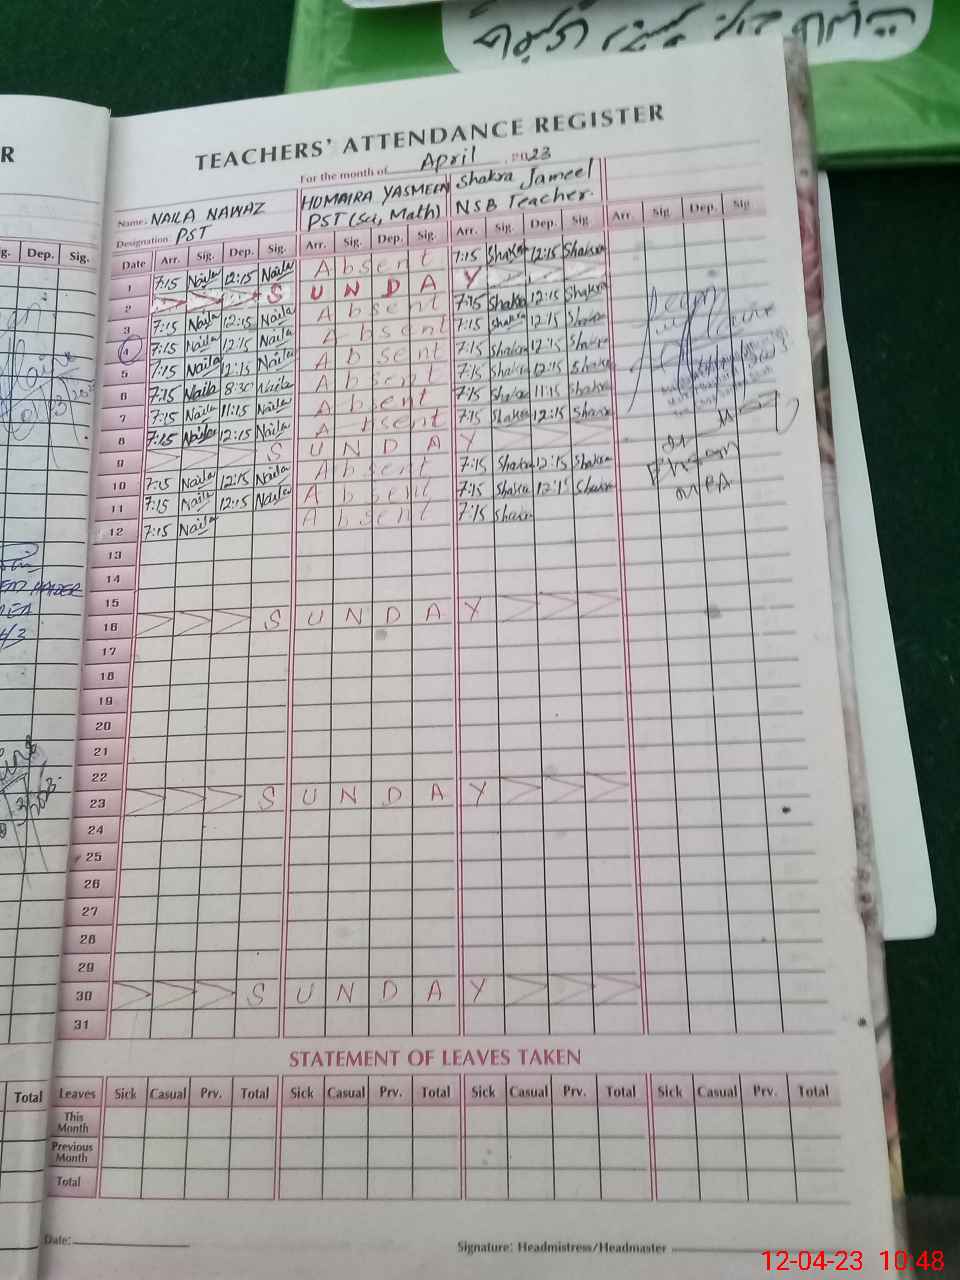 R
TEACHERS' ATTENDANCE REGISTER
For the month of April 2023
Name: NAILA NAWAZ HUMAIRA YASMEEN Shakra Jameel
Designation PST PST (Sci, Math) NSB Teacher.
g. Dep. Sig. Date Arr. Sig. Dep. Sig. Arr. Sig. Dep. Sig. Arr. Sig. Dep. Sig. Arr. Sig. Dep. Sig.
1 7:15 Naila 12:15 Naila Absent 7:15 Shakra 12:15 Shakra
2 SUNDAY
3 7:15 Naila 12:15 Naila Absent 7:15 Shakra 12:15 Shakra
4 7:15 Naila 12:15 Naila Absent 7:15 Shakra 12:15 Shakra
5 7:15 Naila 12:15 Naila Absent 7:15 Shakra 12:15 Shakra
6 7:15 Naila 8:30 Naila Absent 7:15 Shakra 12:15 Shakra
7 7:15 Naila 11:15 Naila Absent 7:15 Shakra 11:15 Shakra
8 7:15 Naila 12:15 Naila Absent 7:15 Shakra 12:15 Shakra
9 SUNDAY
10 7:15 Naila 12:15 Naila Absent 7:15 Shakra 12:15 Shakra
11 7:15 Naila 12:15 Naila Absent 7:15 Shakra 12:1 Shakra
12 7:15 Naila Absent 7:15 Shakra
13
14
15
16 SUNDAY
17
18
19
20
21
22
23 SUNDAY
24
25
26
27
28
29
30 SUNDAY
31
STATEMENT OF LEAVES TAKEN
Total Leaves Sick Casual Prv. Total Sick Casual Prv. Total Sick Casual Prv. Total Sick Casual Prv. Total
This Month
Previous Month
Total
Date:
Signature: Headmistress/Headmaster
12-04-23 10:48